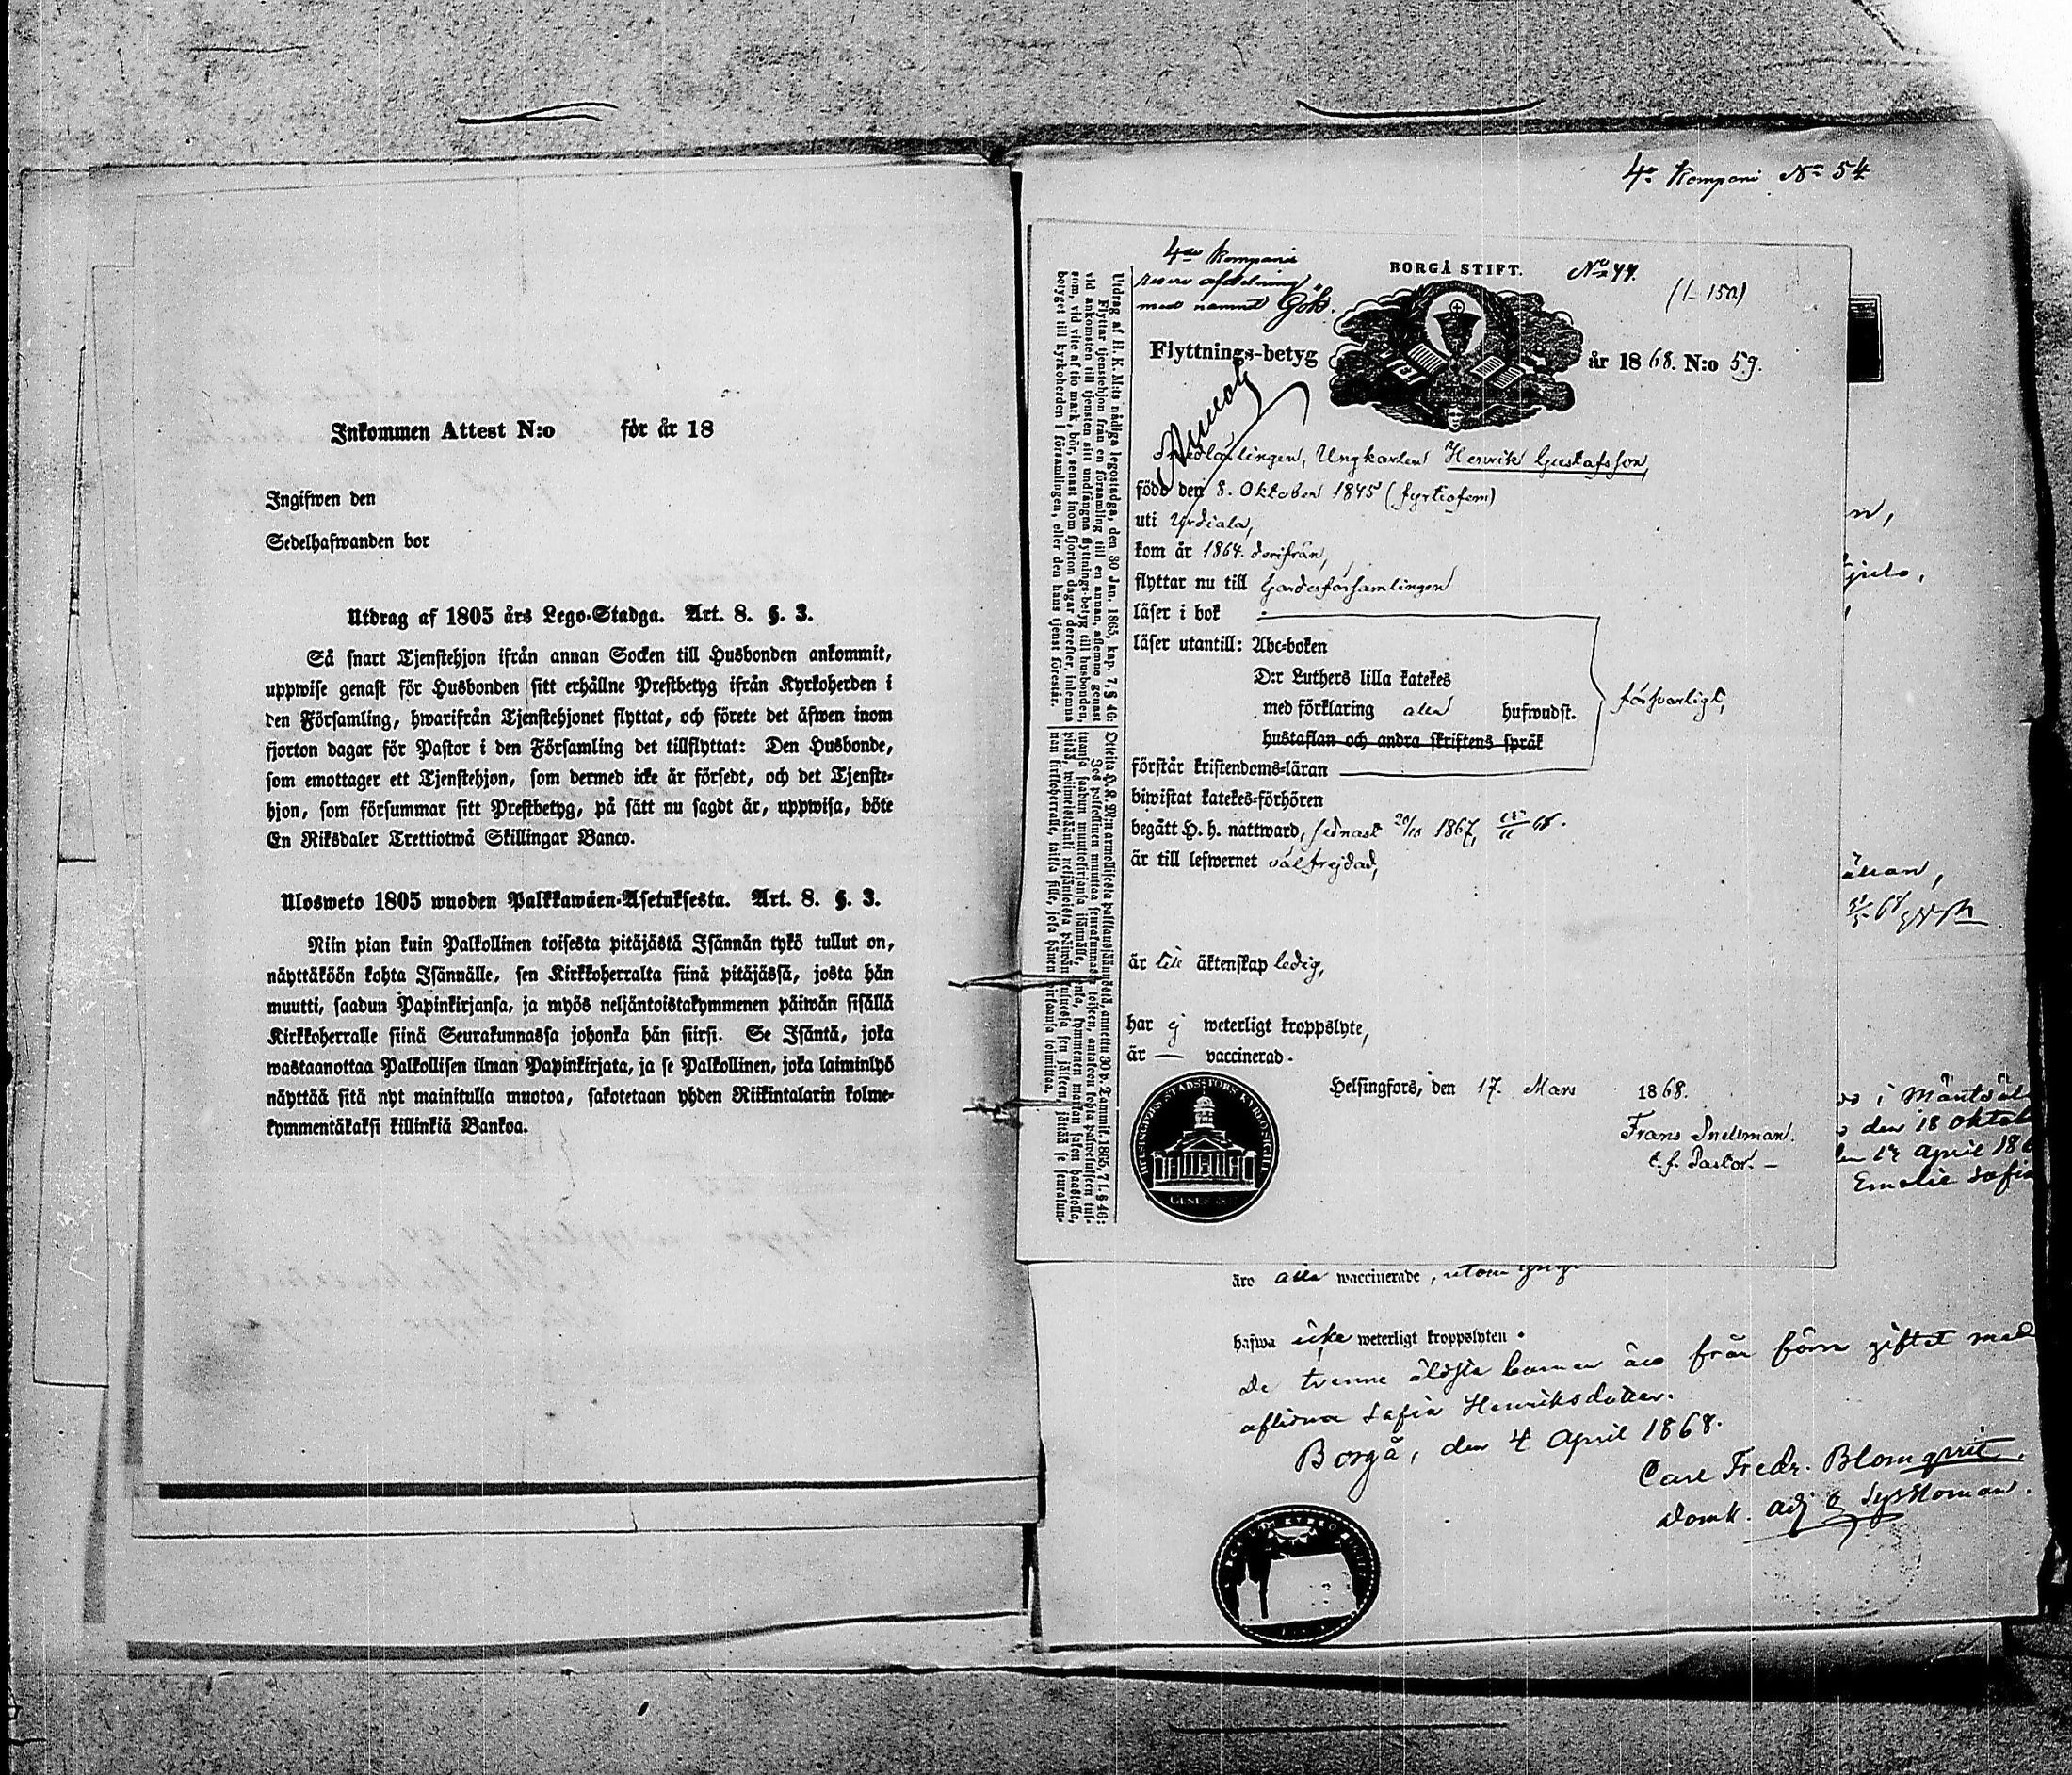 Inkommen Attest N:o för år 18
Ingifwen den
Sedelhafwanden bor
Utdrag af 1805 års Lego-Stadga. Art. 8. §. 3.
Så snart Tjenstehjon ifrån annan Socken till Husbonden ankommit,
uppwise genast för Husbonden sitt erhållne Prestbetyg ifrån Kyrkoherden i
den Församling, hwarifrån Tjenstehjonet flyttat, och förete det äfwen inom
fjorton dagar för Pastor i den Församling det tillflyttat: Den Husbonde,
som emottager ett Tjenstehjon, som dermed icke är försedt, och det Tjenste-
hjon, som försummar sitt Prestbetyg, på sätt nu sagdt är, uppwisa, böte
En Riksdaler Trettiotwå Skillingar Banco.
Ulosweto 1805 wuoden Palkkawäen-Asetuksesta. Art. 8. §. 3.
Niin pian kuin Palkollinen toisesta pitäjästä Isännän tykö tullut on,
näyttäköön kohta Isännälle, sen Kirkkoherralta siinä pitäjässä, josta hän
muutti, saadun Papinkirjansa, ja myös neljäntoistakymmenen päiwän sisällä
Kirkkoherralle siinä Seurakunnassa johonka hän siirsi. Se Isäntä, joka
wastaanottaa Palkollisen ilman Papinkirjata, ja se Palkollinen, joka laiminlyö
näyttää sitä nyt mainitulla muotoa, sakotetaan yhden Riikintalarin kolme-
kymmentäkaksi killinkiä Bankoa.
4e Kompani No 54
4de Kompanie
reserv afdelning
med namnet Gök.
BORGÅ STIFT. No 44.
(1-150)
Flyttnings-betyg år 1868. N:o 59.
Ungkarlen Henrik Gustafsson,
född den 8. Oktober 1845 (fyrtiofem)
uti Urdiala,
kom år 1864. derifrån,
flyttar nu till Gardesförsamlingen
läser i bok
läser utantill: Abc-boken
D:r Luthers lilla katekes
med förklaring alla hufwudst.
hustaflan och andra skriftens språk
försvarligt,
förstår kristendoms-läran
biwistat katekes-förhören
begått H. h. nattward, sednast 20/10 1867, 68.
är till lefwernet välfrejdad,
är till äktenskap ledig,
har ej weterligt kroppslyte,
är — vaccinerad.
Helsingfors, den 17. Mars 1868.
Frans Snellman.
t.f. Pastor. –
Utdrag af H. K. M:ts nådiga legostadga, den 30 Jan. 1865, kap. 7, § 46:
Flyttar tjenstehjon från en församling till en annan, aflemne genast
vid ankomsten till tjensten sitt undfångna flyttnings-betyg till husbonden,
som, vid vite af tio mark, bör, senast inom fjorton dagar derefter, inlemna
betyget till kyrkoherden i församlingen, eller den hans tjenst förestår.
äro alla waccinerade, utom
hafwa icke weterligt kroppslyten.
De trenne äldsta barnen äro från förra giftet med
aflidna Sofia Henriksdotter.
Borgå, den 4 April 1868.
Carl Fredr. Blomqvist.
Domk. adj & Syssloman.
i Mäntsäl
den 18 Oktob
den 17 April 186
Emelie Sofia